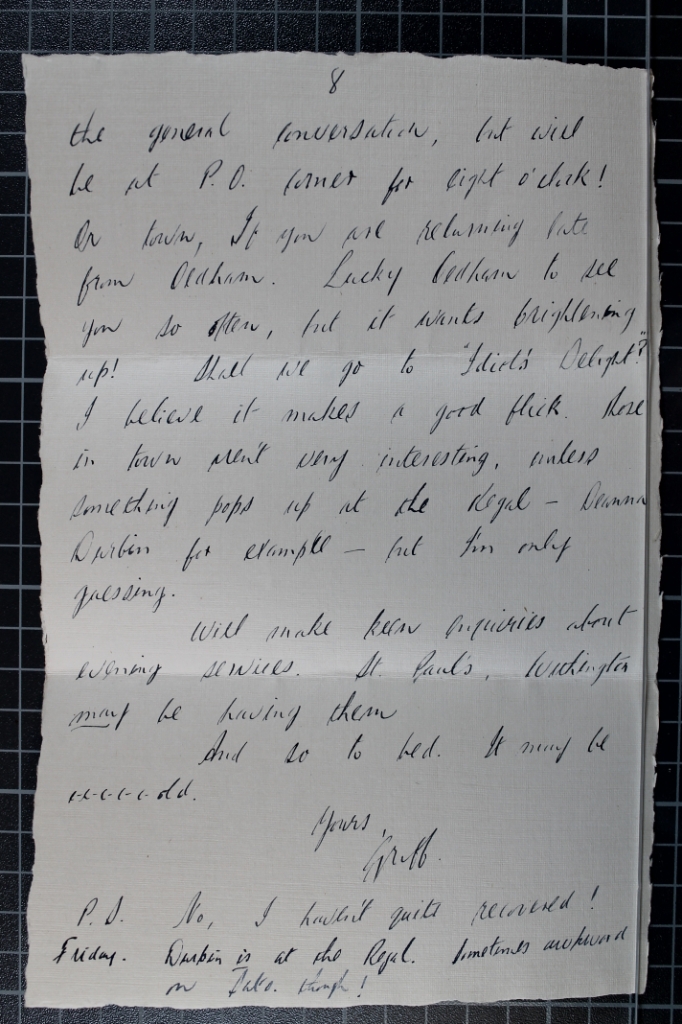 8
the general conversation, but will
be at P.O. corner for eight o'clock!
Or town, If you are returning late
from Oldham. Lucky Oldham to see
you so often, but it wants brightening
up! Shall we go to "Idiot's Delight"?
I believe it makes a good flick. Those
in town aren't very interesting, unless
something pops up at the Regal – Deanna
Durbin for example – but I'm only
guessing.
Will make keen enquiries about
evening services. St. Paul's, Withington
may be having them
And so to bed. It may be
c-c-c-c-c-old.
Yours,
Griff.
P.S. No, I haven't quite recovered!
Friday. Durbin is at the Regal. Sometimes awkward
on Sats. though!